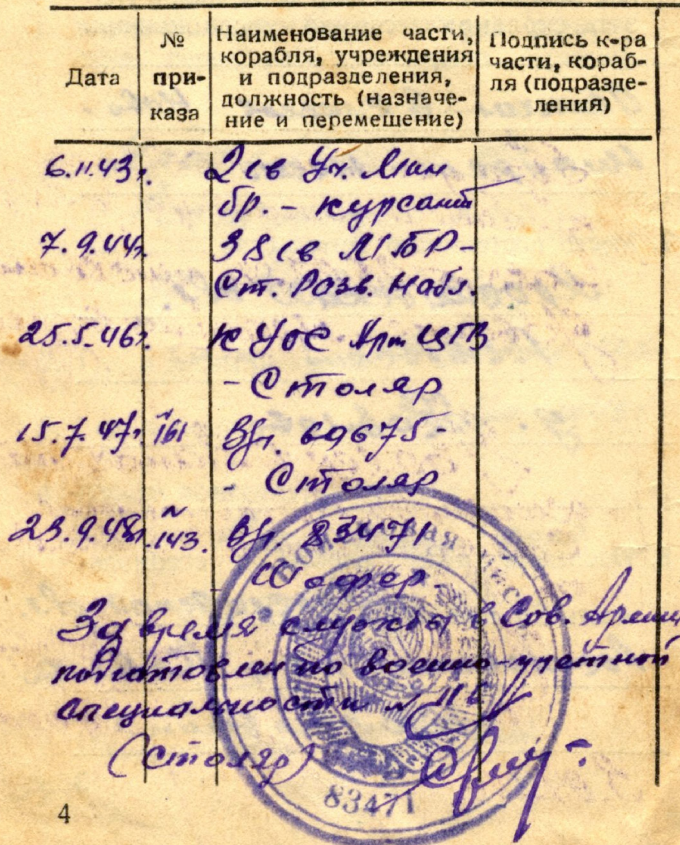 Дата
№ при-
каза
Наименование части,
корабля, учреждения
и подразделения,
должность (назначе-
ние и перемещение)
Подпись к-ра
части, кораб-
ля (подразде-
ления)
6.11.43г. 2 св Уч. Мин
бр. - курсант
7.9.44г. 38 св МБР-
Ст. Разв. Набл.
25.5.46г. КУОС Арт ЦГВ
- Столяр
15.7.47г. 161 В/ч. 69675-
- Столяр
23.9.48г. 143. В/ч. 83471
Шофер.
За время службы в Сов. Армии
подготовлен по военно-учетной
специальности №
(столяр)
83471
4